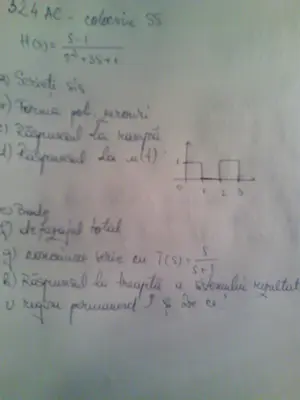 324 AC - colocviu SS
H(s) = (s-1)/(s²+3s+2)
a) Scrieți sis
b) Forma poli, zerouri
c) Răspunsul la rampă
d) Răspunsul la u(t):
1
0 1 2 3
e) Bode
f) defazajul total
g) conexiune serie cu T(s) = s/(s+1)
h) Răspunsul la treaptă a sistemului rezultat
regim permanent